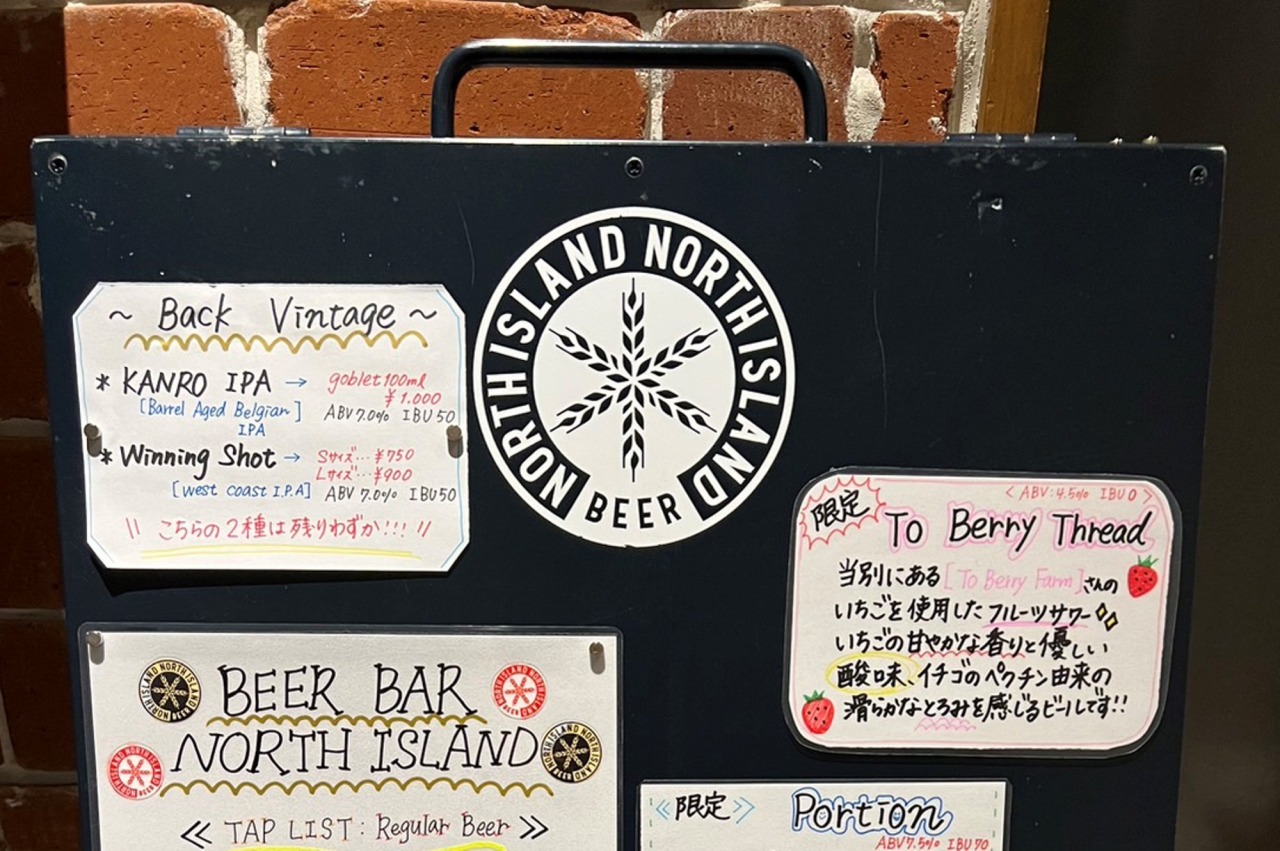 NORTH ISLAND NORTH ISLAND
BEER
~ Back Vintage ~
* KANRO IPA → goblet 100ml
¥1.000
[Barrel Aged Belgian] ABV 7.0% IBU 50
IPA
* Winning Shot → Sサイズ…¥750
Lサイズ…¥900
[west coast I.P.A] ABV 7.0% IBU 50
\\ こちらの2種は残りわずか!!! //
限定
< ABV:4.5% IBU 0 >
To Berry Thread
当別にある[To Berry Farm]さんの
いちごを使用したフルーツサワー
いちごの甘やかな香りと優しい
酸味、イチゴのペクチン由来の
滑らかなとろみを感じるビールです!!
BEER BAR
NORTH ISLAND
≪ TAP LIST: Regular Beer ≫
NORTH ISLAND NORTH ISLAND BEER
NORTH ISLAND NORTH ISLAND BEER
NORTH ISLAND NORTH ISLAND BEER
NORTH ISLAND NORTH ISLAND BEER
≪限定≫ Portion
ABV7.5% IBU70